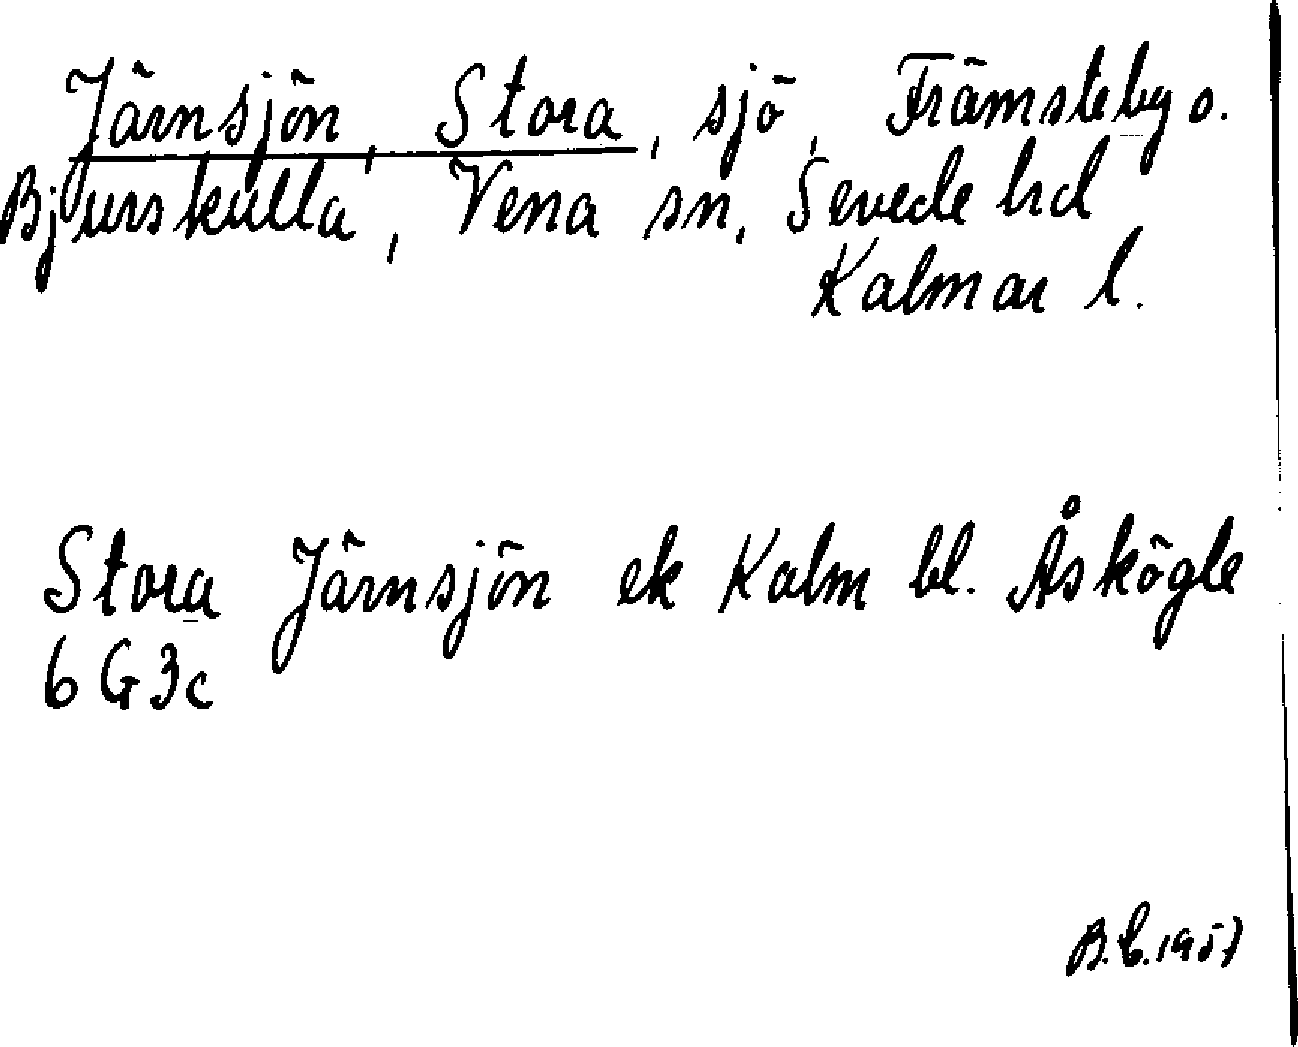 Järnsjön, Stora, sjö, Främsteby o.
Bjurskulla, Vena sn, Sevede hd
Kalmar l.
Stora Järnsjön ek Kalm bl. Åskögle
6G3c
B.C.1957